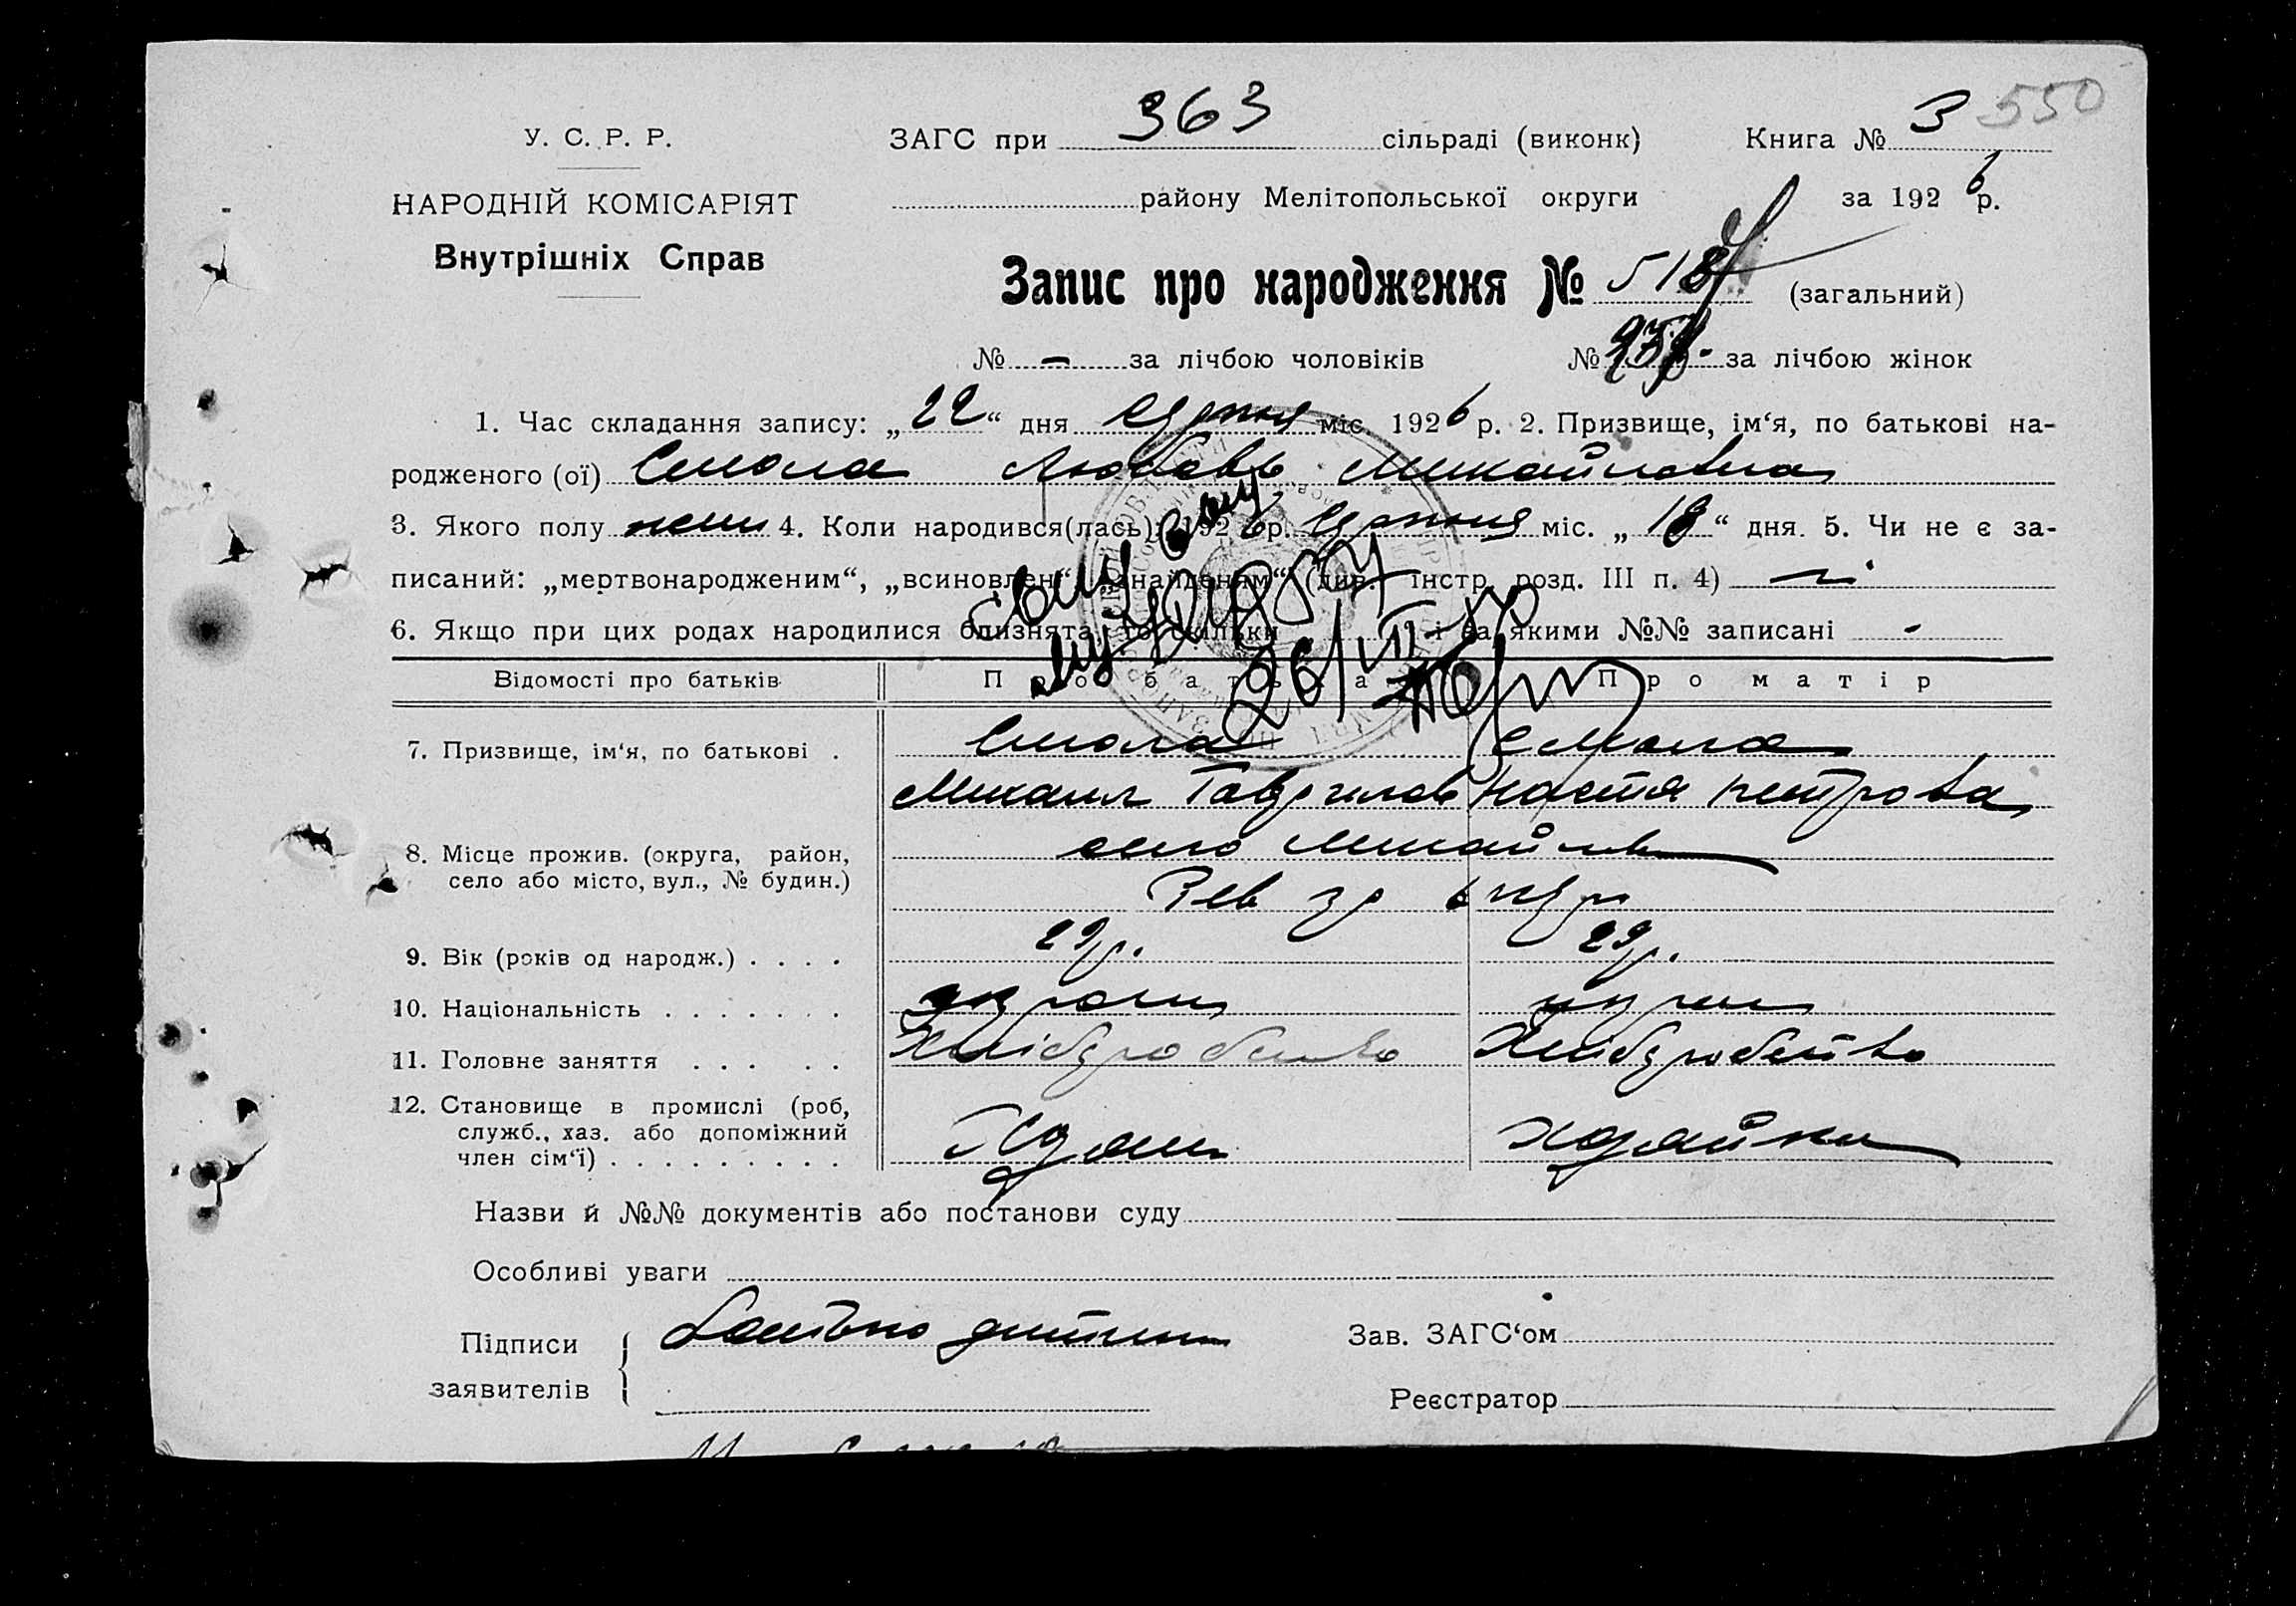 550
У. С. Р. Р.
ЗАГС при 363 сільраді (виконк) Книга № 3
НАРОДНІЙ КОМІСАРІЯТ
району Мелітопольської округи за 1926 р.
Внутрішніх Справ
Запис про народження № 518 (загальний)
№ - за лічбою чоловіків № за лічбою жінок
1. Час складання запису: „22“ дня Серпня міс. 1926 р. 2. Призвище, ім‘я, по батькові на-
родженого (ої) Смола Любовь Михайловна
3. Якого полу жін 4. Коли народився(лась): 1926 р. Серпня міс. „18“ дня. 5. Чи не є за-
писаний: „мертвонародженим“, „всиновлен“, „знайденям“ (див. інстр. розд. III п. 4)
6. Якщо при цих родах народилися близнята, то скільки і за якими №№ записані -
26/VII-50
Відомості про батьків Про батька Про матір
7. Призвище, ім‘я, по батькові . Смола Смола
Михаил Гаврилов Настя петрова
8. Місце прожив. (округа, район, село Михайлов
село або місто, вул., № будин.)
9. Вік (років од народж.) . . . . 29р. 29р.
10. Національність . . . . . . . україн україн
11. Головне заняття . . . . . Хліборобство Хліборобство
12. Становище в промислі (роб,
служб., хаз. або допоміжний Хдзяин хдзяйка
член сім‘ї) . . . . . . . . .
Назви й №№ документів або постанови суду
Особливі уваги
Підписи Батько дитини Зав. ЗАГС‘ом
заявителів
Реєстратор